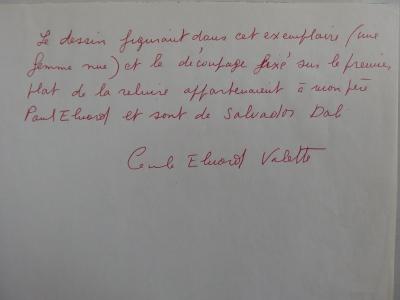 Le dessin figurant dans cet exemplaire (une
femme nue) et le découpage fixé sur le premier
plat de la reliure appartenaient à mon père
Paul Eluard et sont de Salvador Dali
Cécile Eluard Valette